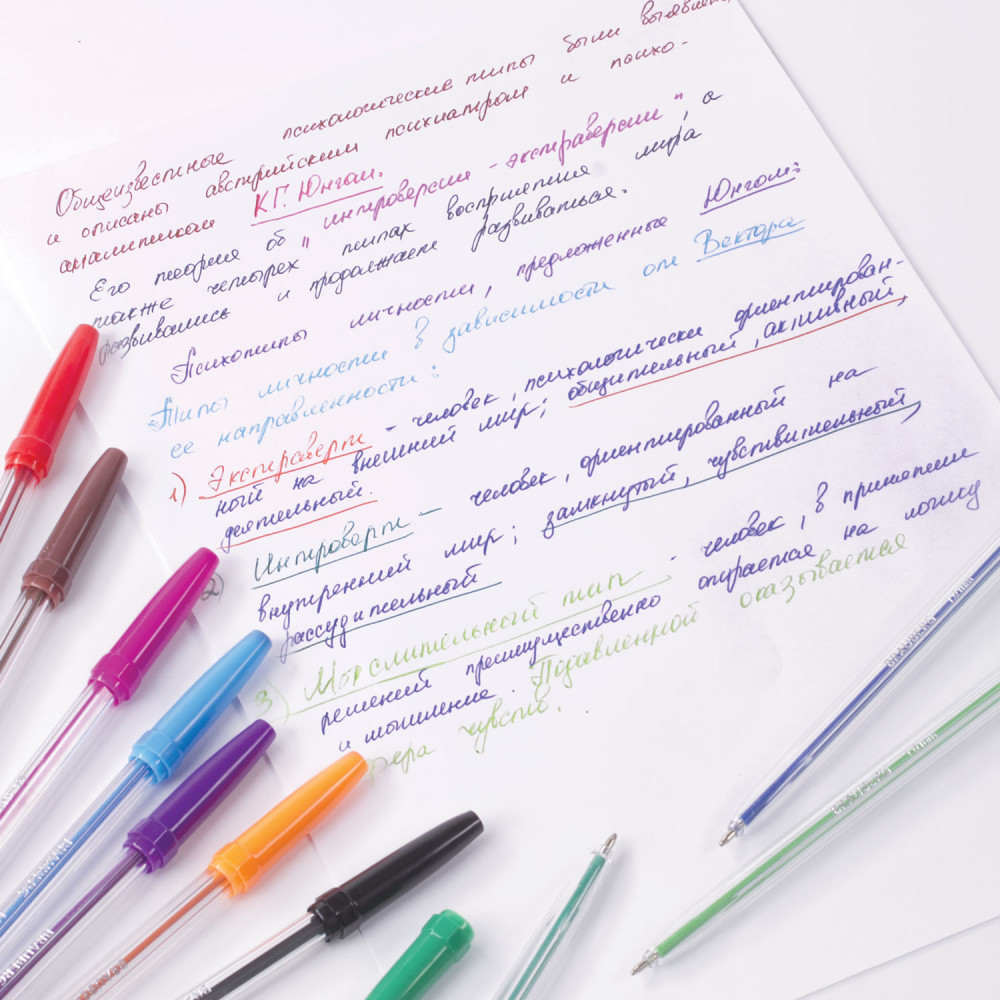 Общеизвестные психологические типы были выявлены
и описаны австрийским психиатром и психо-
аналитиком К.Г. Юнгом.
Его теория об "интроверсии - экстраверсии", а
также четырех типах восприятия мира
развивались и продолжает развиваться.
Психотипы личности, предложенные Юнгом:
Типы личности в зависимости от Вектора
ее направленности:
1) Экстраверты - человек, психологически ориентирован-
ный на внешний мир; общительный, активный,
деятельный.
2) Интроверты - человек, ориентированный на
внутренний мир; замкнутый, чувствительный,
рассудительный
3) Мыслительный тип - человек, в принятии
решений преимущественно опирается на логику
и мышление. Подавленной оказывается
сфера чувств.